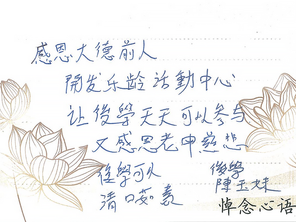 感恩大德前人
開发乐龄活動中心
让後學天天可以参与
又感恩老申慈悲
後學可以
清口茹素
後學
陳玉妹
悼念心语